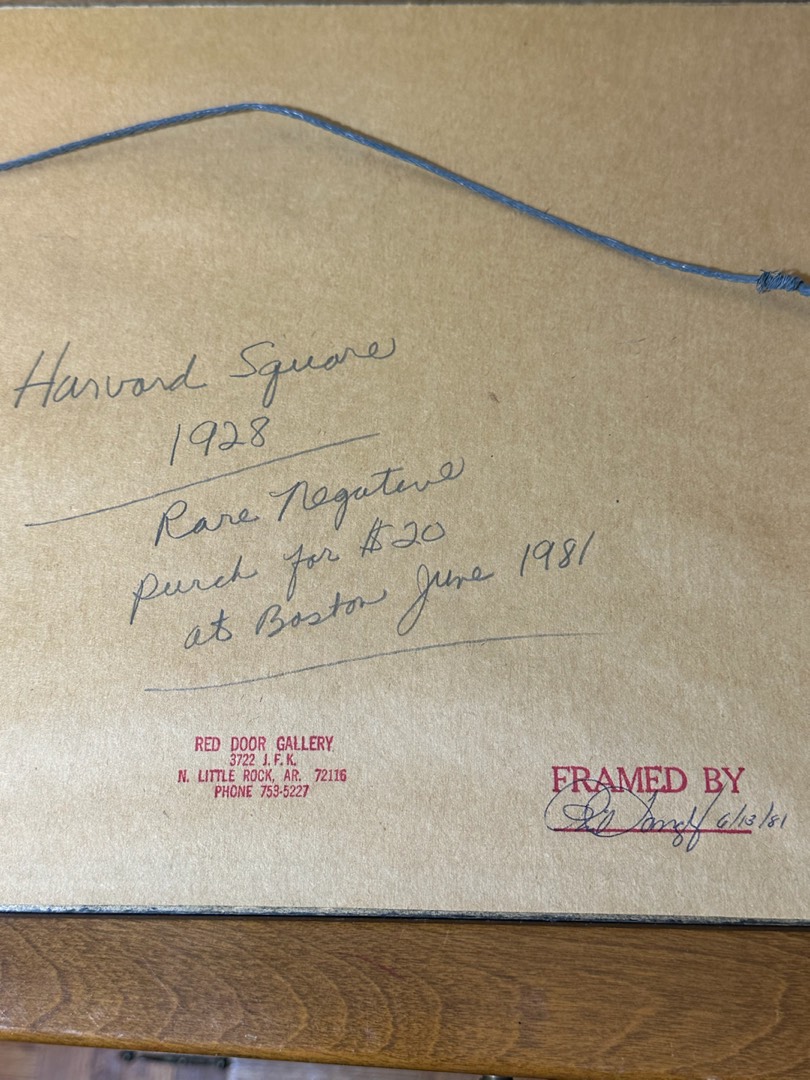 Harvard Square
1928
Rare Negative
purch for $20
at Boston June 1981
RED DOOR GALLERY
3722 J.F.K.
N. LITTLE ROCK, AR. 72116
PHONE 753-5227
FRAMED BY
6/13/81